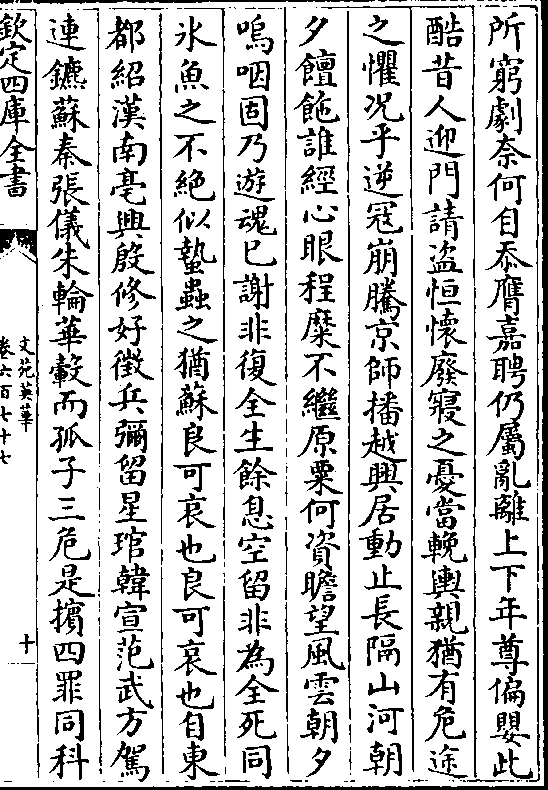 所窮劇奈何自忝膺嘉聘仍屬亂離上下年尊偏嬰此
酷昔人迎門請盜恒懷廢寢之憂當輓輿親猶有危途
之懼况乎逆冦崩騰京師播越興居動止長隔山河朝
夕饘飴誰經心眼程糜不繼原粟何資瞻望風雲朝夕
嗚咽固乃遊魂已謝非復全生餘息空留非為全死同
氷魚之不絶似蟄蟲之猶蘇良可哀也良可哀也自東
都紹漢南亳興殷修好徵兵彌留星琯韓宣范武方駕
連鑣蘇秦張儀朱輪華轂而孤子三危是擯四罪同科
欽定四庫全書
文苑英華
卷六百七十七
十